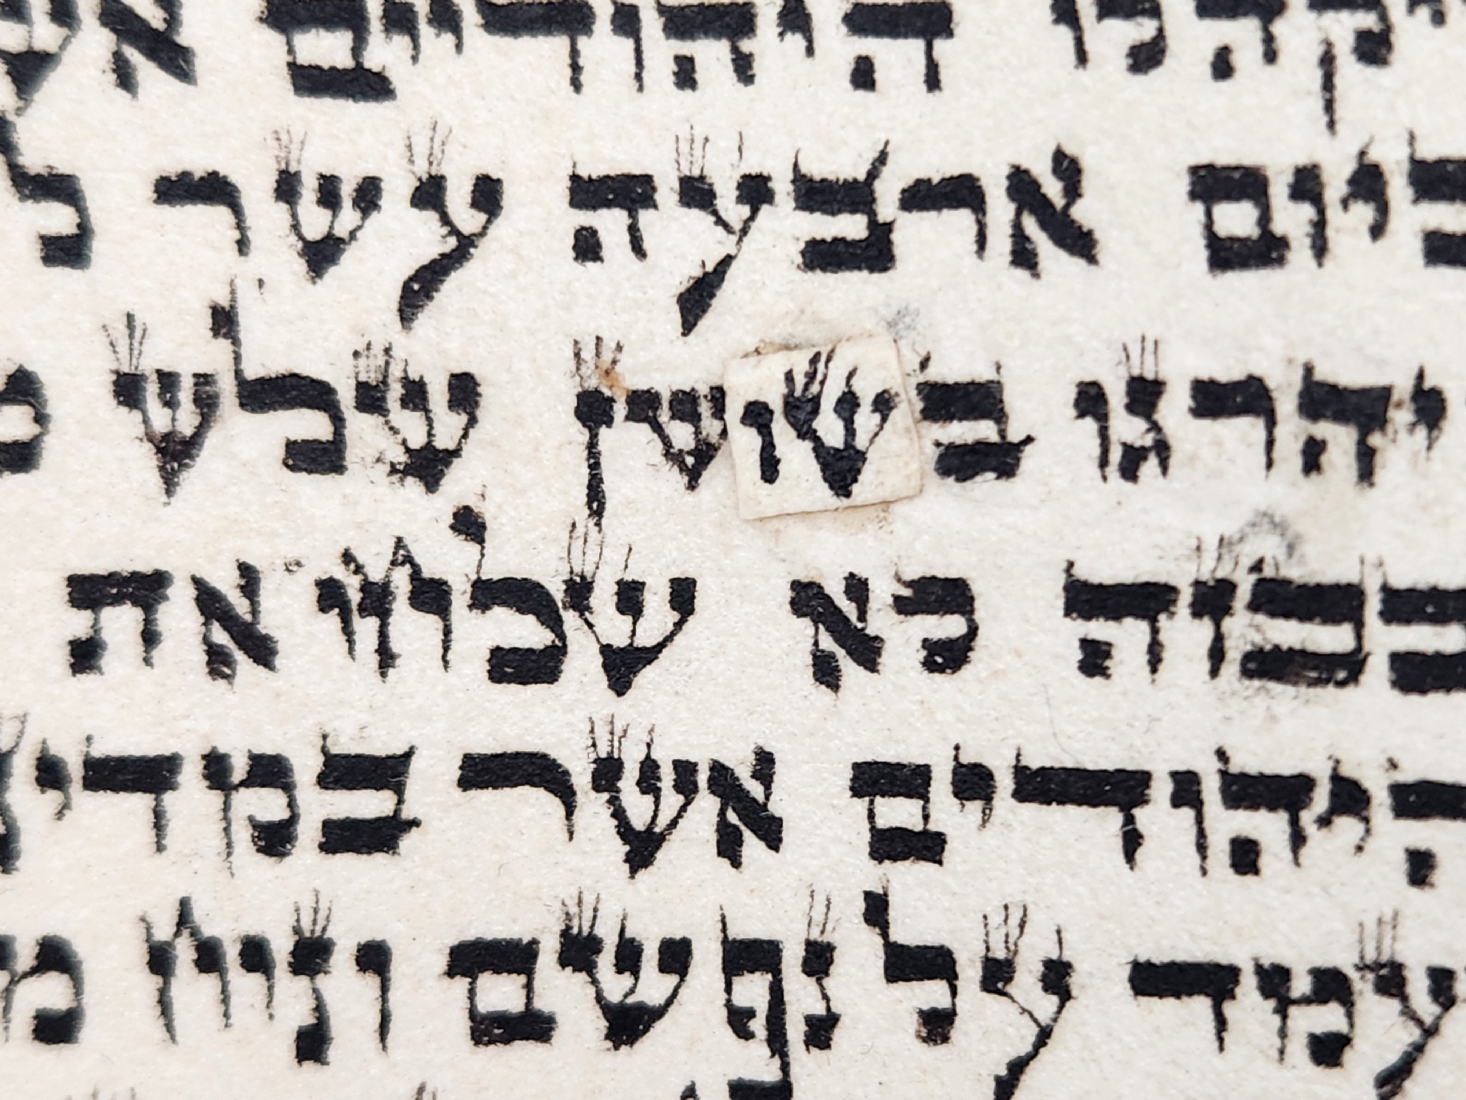 יקהלו היהודיים אש
ביום ארבעה עשר ל
יהרגו בשושן שלש מ
בבזה לא שלחו את
היהודים אשר במדי
עמד על נפשם ונוח מ